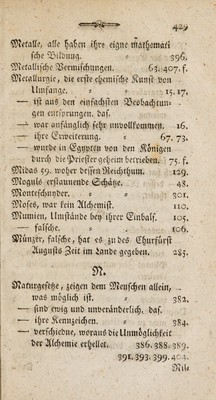 429
Metalle, alle haben ihre eigne mathemati
sche Bildung. 396.
Metallische Vermischungen. 63. 407. f.
Metallurgie, die erste chemische Kunst von
Umfange. 15. 17.
— ist aus den einfachsten Beobachtun-
gen entsprungen. das.
— war anfänglich sehr unvollkommen. 16.
— ihre Erweiterung. 67. 73.
— wurde in Egypten von den Königen
durch die Priester geheim betrieben. 75. f.
Midas 59. woher dessen Reichthum. 129.
Moguls erstaunende Schätze. 48.
Monteschnyder. 301.
Moses, war kein Alchemist. 110.
Mumien, Umstände bey ihrer Einbals. 105.
— falsche. 106.
Münzer, falsche, hat es zu des Churfürst
Augusts Zeit im Lande gegeben. 285.
N.
Naturgesetze, zeigen dem Menschen allein,
was möglich ist. 382.
— sind ewig und unveränderlich. das.
— ihre Kennzeichen. 384.
— verschiedne, woraus die Unmöglichkeit
der Alchemie erhellet. 386. 388. 389.
391. 393. 399. 404.